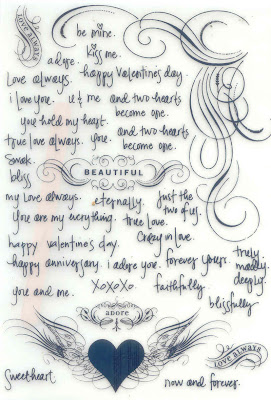 love always
be mine.
kiss me.
adore.
Love always. happy Valentine's day
i love you. u & me and two hearts
become one.
you hold my heart.
true love always. you. and two hearts
become one.
Smak.
bliss
BEAUTIFUL
my Love always. eternally. Just the
two of us.
You are my everything. true love.
Crazy in love.
happy valentine's day.
happy anniversary. i adore you. forever yours. truly.
madly.
deeply.
you and me. XoXoXo. faithfully.
blissfully
adore
love always
sweetheart.
now and forever.